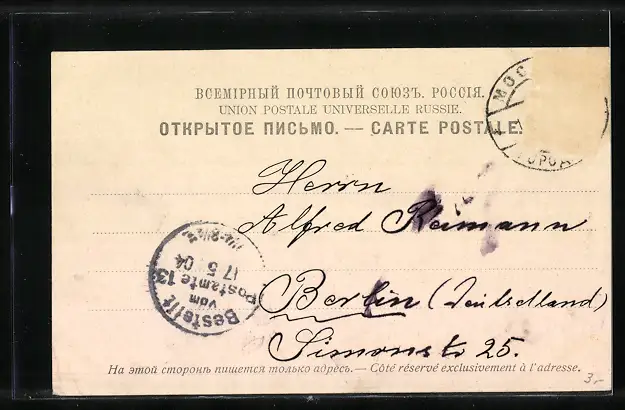 ВСЕМІРНЫЙ ПОЧТОВЫЙ СОЮЗЪ. РОССІЯ.
UNION POSTALE UNIVERSELLE RUSSIE.
ОТКРЫТОЕ ПИСЬМО. — CARTE POSTALE.
Herrn
Alfred Reimann
Berlin (Deutschland)
Simonstr 25.
Bestellt
vom
Postamte 13
17 5 04
На этой сторонѣ пишется только адресъ. — Côté réservé exclusivement à l'adresse.
3.-